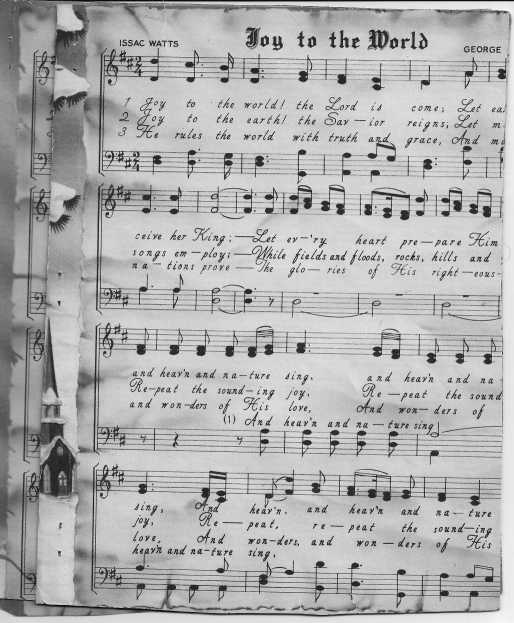 Joy to the World
ISSAC WATTS GEORGE
1 Joy to the world! the Lord is come; Let
2 Joy to the earth! the Sav–ior reigns, Let
3 He rules the world with truth and grace, And
ceive her King;—Let ev-'ry heart pre–pare Him
songs em–ploy;—While fields and floods, rocks, hills and
na–tions prove—The glo–ries of His right–eous-
and heav'n and na–ture sing, and heav'n and na
Re–peat the sound–ing joy, Re–peat the sound
and won–ders of His love, And won–ders of
(1) And heav'n and na–ture sing
sing, And heav'n, and heav'n and na–ture
joy, Re–peat, re–peat the sound–ing
love, And won–ders, and won–ders of His
heav'n and na–ture sing,